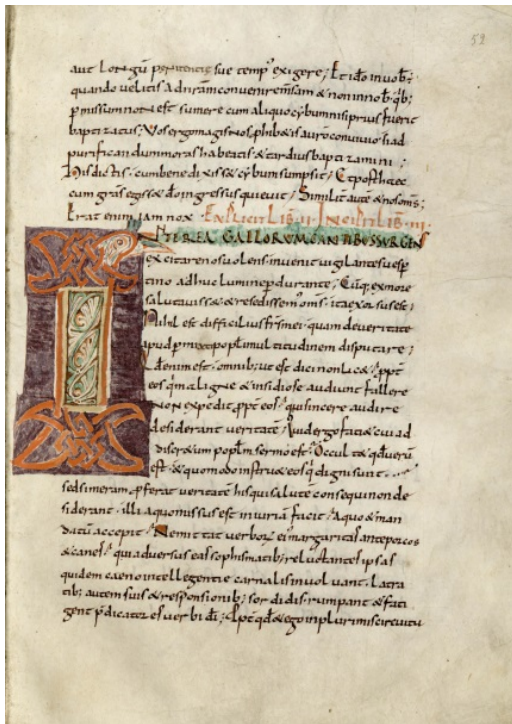 52
aut longū penitentię sue temp' exigere; Et ido in vob;
quando velitis ad nr̄am convenire msam & non in nob; qb;
pmissum non est sumere cum aliquo cybum nisi prius fuerit
baptizatus; Vos ergo magis nos phib&is a vr̄o convivio si ad
purificandum moras habeatis & tardius baptizamini;
His dictis, cum benedixiss& cybum sumpsit; Et posthaec
cum grās egiss& dō ingressus quievit; Similit aute & nos oms;
Erat enim iam nox · Explicit lib · ii · Incipit lib · iii ·
INTEREA GALLORUM CANTIBUS SURGENS
excitare nos volens invenit vigilantes vesp
tino adhuc lumine pdurante; Cūq; ex more
salutaviss& & resedissem' oms · ita exorsus est;
Nihil est difficilius fr̄s mei quam de veritate
apud pmixtopopl'i multitudinem disputare;
Id enim est · omnib; ut est dici non lic& · ppt
eos q maligne & insidiose audiunt fallere
non expedit ppt eos · qui sincere audire
desiderant veritatē; Quid ergo faci& cui ad
popl'm sermo est; Occul&
est · & quomodo instru& eos q digni sunt
sed si meram pferat veritatē his qui salutē consequi non de
siderant · illi a quo missus est iniuriā facit · A quo & man
datū accepit · Ne mittat verborȝ ei' margaritas ante porcos
& canes · qui adversus eas sophismatib; reluctantes ipsas
quidem caeno intellegentię carnalis involvant · latra
tib; autem suis & responsionib; sordidis rumpant & fati
gent pdicatores verbi dī; Ppt qd & ego in plurimis circuitu